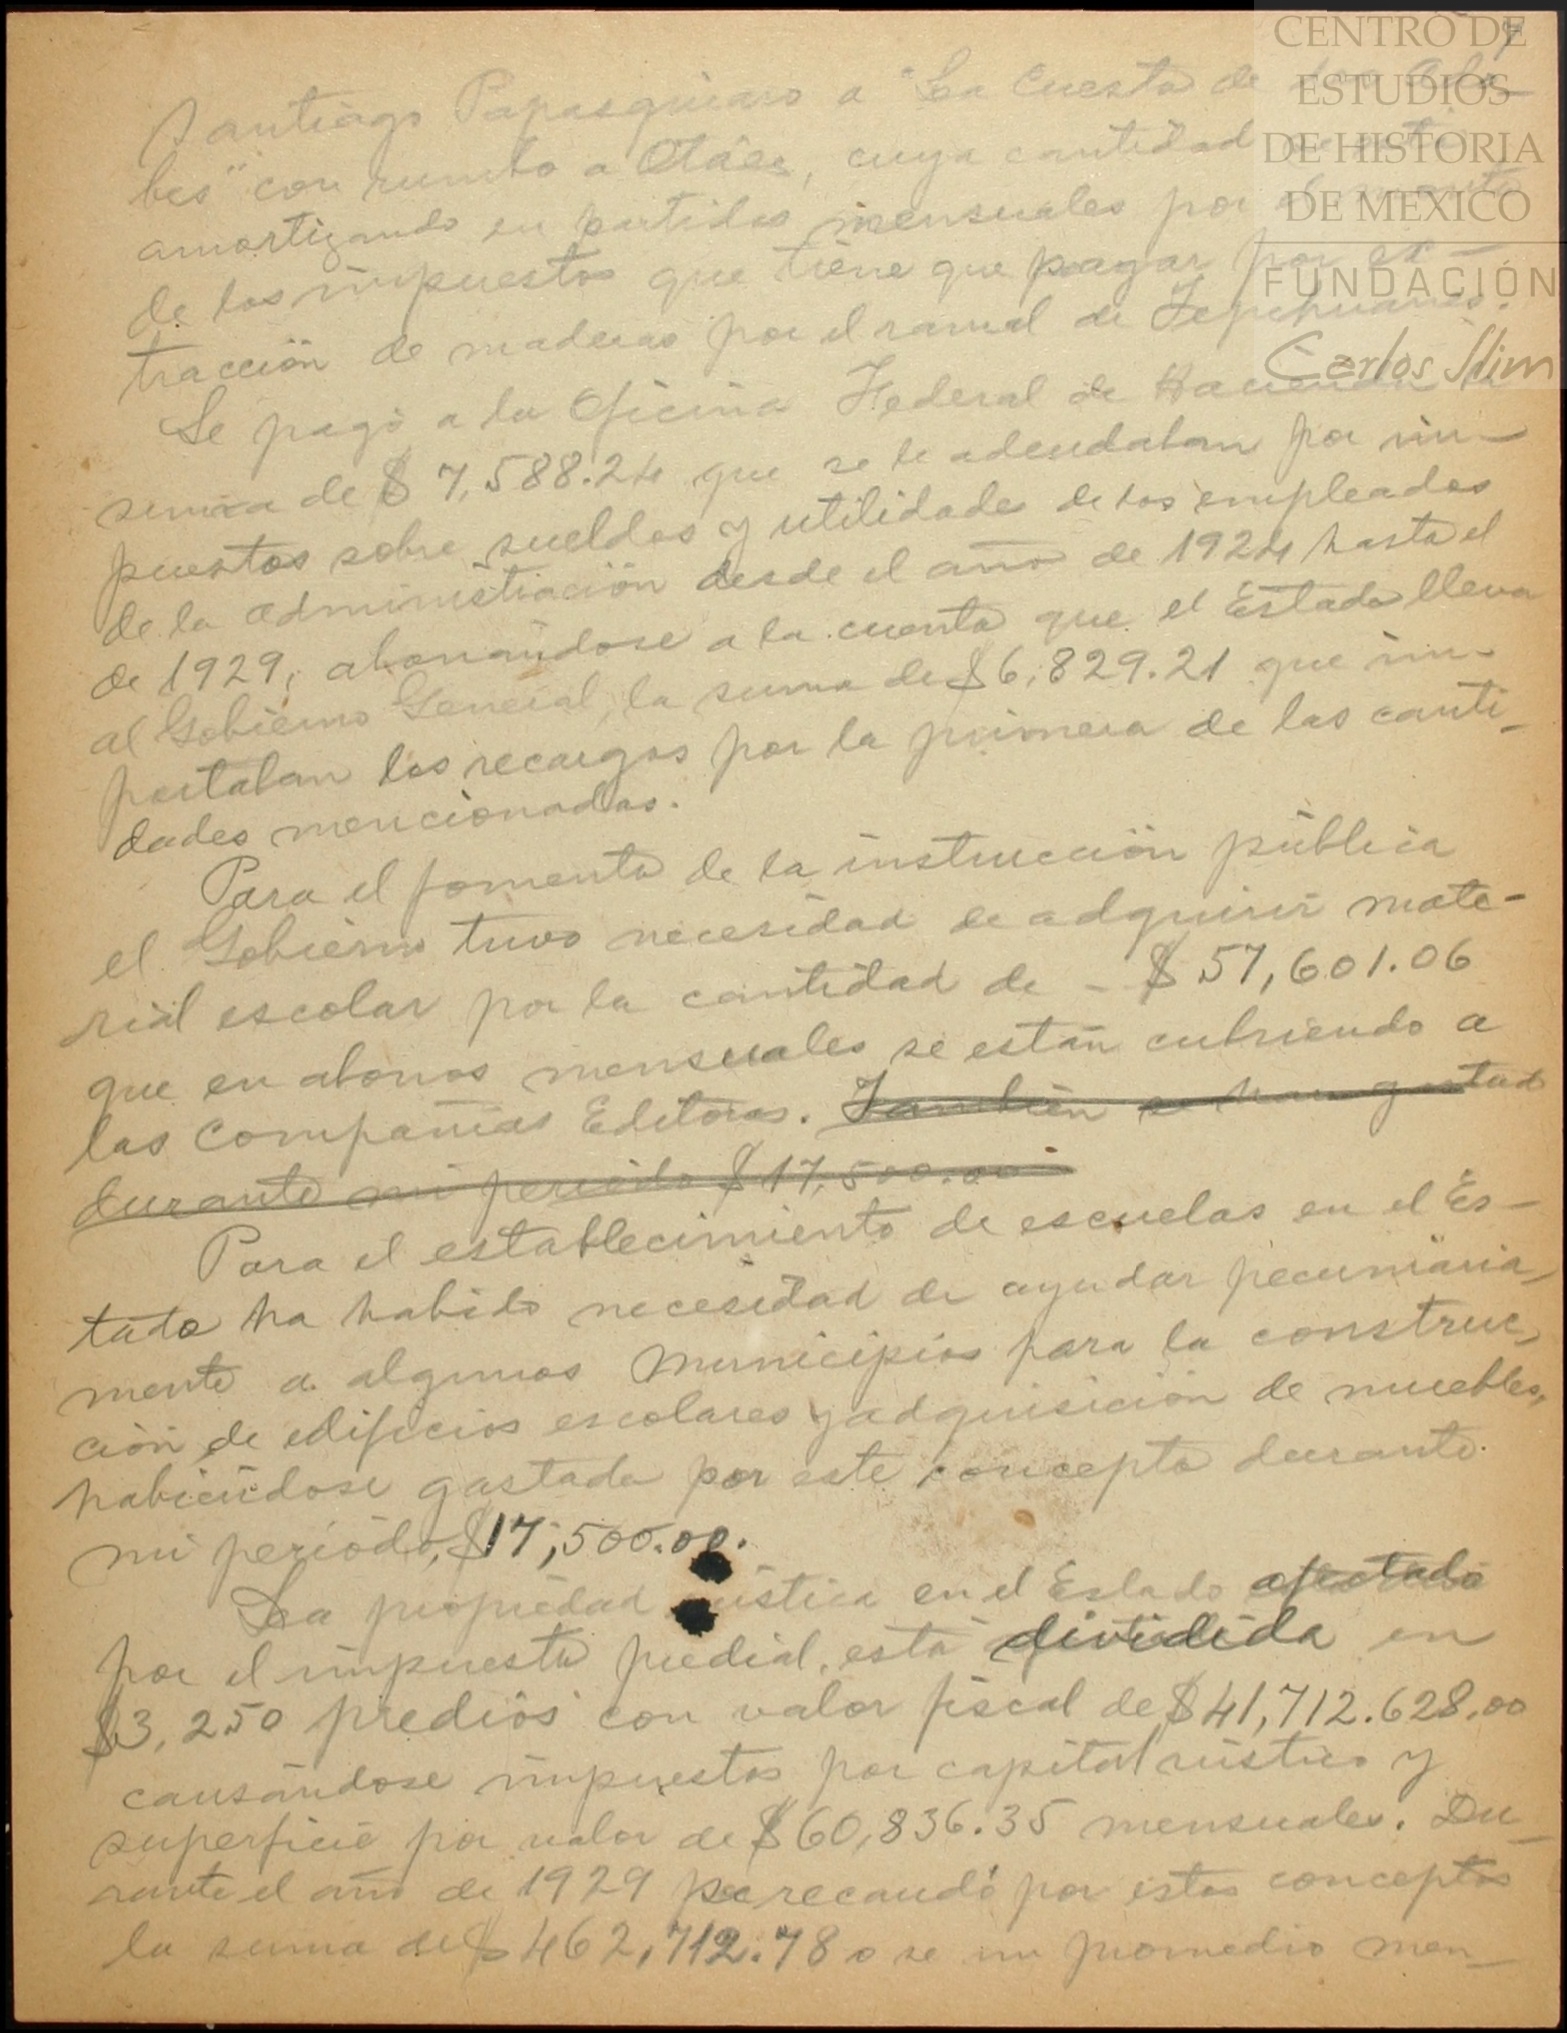 CENTRO DE
ESTUDIOS
DE HISTORIA
DE MEXICO
FUNDACIÓN
Carlos Slim
7
Santiago Papasquiaro a "La Cuesta de los Ado-
bes" con rumbo a Otáez, cuya cantidad se está
amortizando en partidas mensuales por el monto
de los impuestos que tiene que pagar por ex-
tracción de maderas por el ramal de Tepehuanes.
Se pagó a la Oficina Federal de Hacienda la
suma de $ 7,588.24 que se le adeudaban por im-
puestos sobre sueldos y utilidades de los empleados
de la administración desde el año de 1924 hasta el
de 1929, abonándose a la cuenta que el Estado lleva
al Gobierno General, la suma de $6,829.21 que im-
portaban los recargos por la primera de las canti-
dades mencionadas.
Para el fomento de la instrucción pública
el Gobierno tuvo necesidad de adquirir mate-
rial escolar por la cantidad de - $ 57,601.06
que en abonos mensuales se están cubriendo a
las Compañías Editoras. También se han gastad
durante mi período $ 17,500.00
Para el establecimiento de escuelas en el Es-
tado ha habido necesidad de ayudar pecuniaria-
mente a algunos Municipios para la construc-
ción de edificios escolares y adquisición de muebles,
habiéndose gastado por este concepto durante
mi período, $17,500.00.
La propiedad rústica en el Estado afectada
por el impuesto predial, está dividida en
$3,250 predios con valor fiscal de $41,712.628.00
causándose impuestos por capital rústico y
superficie por valor de $60,836.35 mensuales. Du-
rante el año de 1929 se recaudó por estos conceptos
la suma de $ 462,712.78 o se un promedio men-